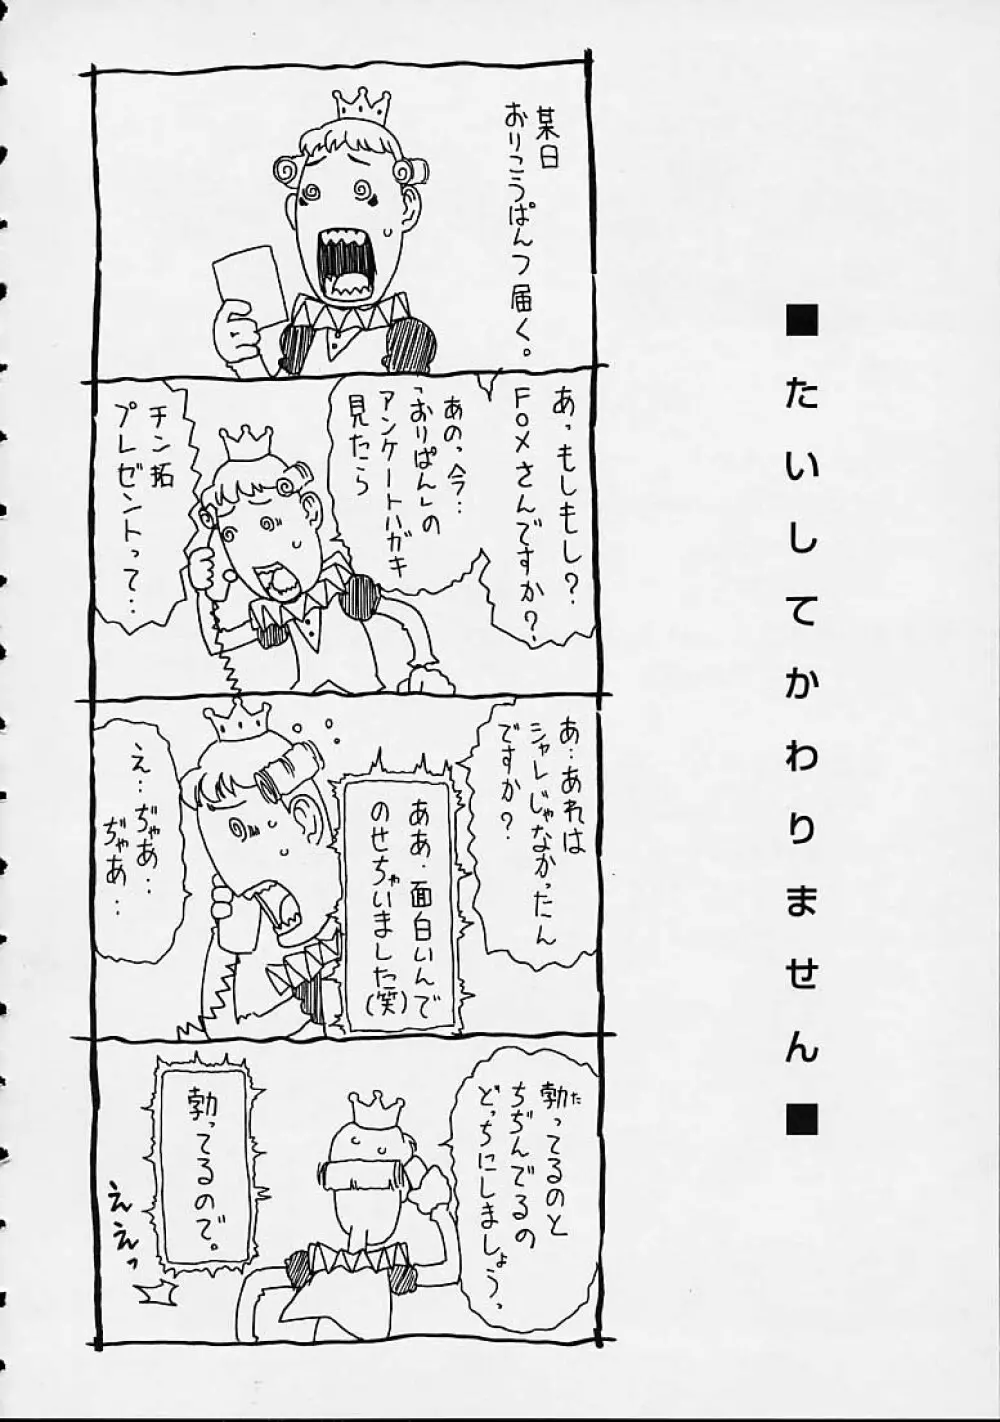 ■たいしてかわりません■
某日
おりこうぱんつ届く。
あっもしもし？
FOXさんですか？
あのっ今…
「おりぱん」の
アンケートハガキ
見たら
チン拓
プレゼントって…
あ…あれは
シャレじゃなかったん
ですか？
ああ、面白いんで
のせちゃいました(笑)
え…ぢゃあ…
ぢゃあ…
勃ってるのと
た
ちぢんでるの
どっちにしましょう。
勃ってるので。
ええっ